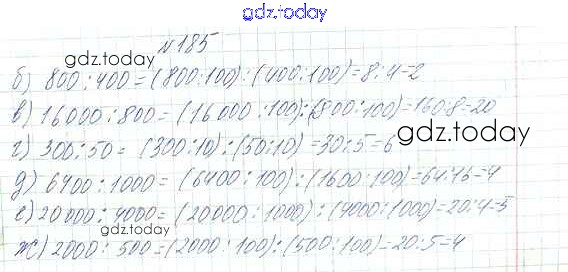 gdz.today
№185
gdz.today
б) 800:400=(800:100):(400:100)=8:4=2
в) 16000:800=(16000:100):(800:100)=160:8=20
г) 300:50=(300:10):(50:10)=30:5=6
gdz.today
д) 6400:1000=(6400:100):(1600:100)=64:16=4
е) 20000:4000=(20000:1000):(4000:1000)=20:4=5
ж) 2000:500=(2000:100):(500:100)=20:5=4